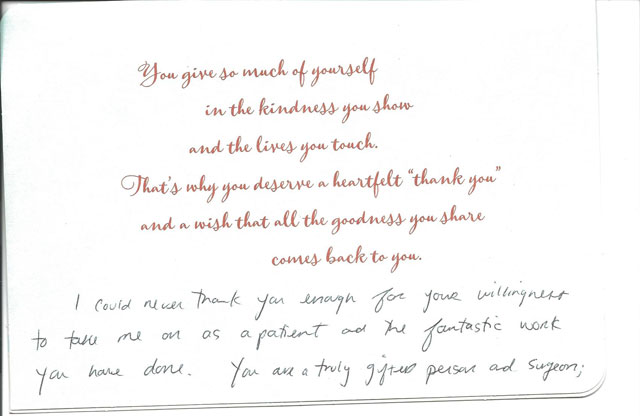 You give so much of yourself
in the kindness you show
and the lives you touch.
That's why you deserve a heartfelt "thank you"
and a wish that all the goodness you share
comes back to you.
I could never thank you enough for your willingness
to take me on as a patient and the fantastic work
you have done. You are a truly gifted person and surgeon;